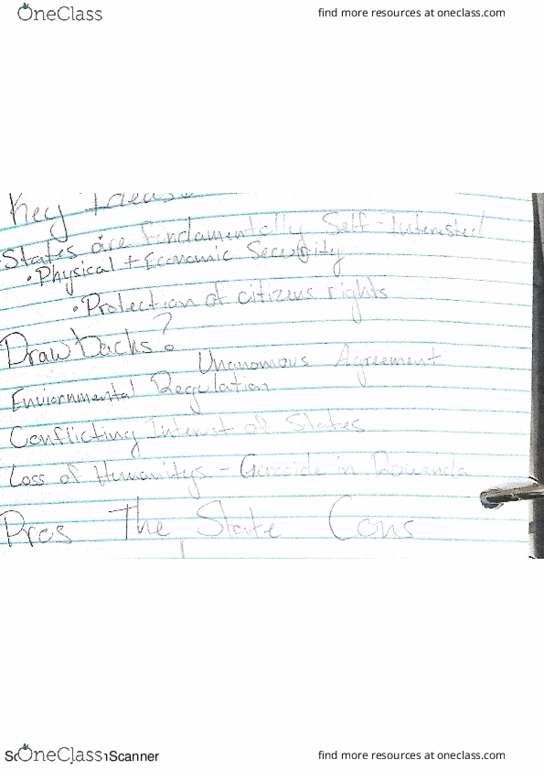 OneClass find more resources at oneclass.com
Key Ideas
States are fundamentally Self-Intersted
• Physical + Economic Security
• Protection of citizens rights
Drawbacks?
Unanomous Agreement
Enviornmental Regulation
Conflicting Interest of States
Loss of Humanitys - Genocide in Rowanda
Pros The State Cons
OneClass Scanner find more resources at oneclass.com